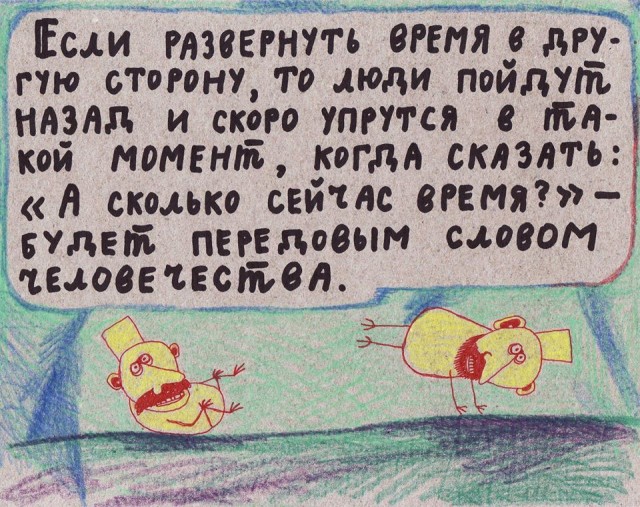 Если развернуть время в дру-
гую сторону, то люди пойдут
назад и скоро упрутся в та-
кой момент, когда сказать:
« А сколько сейчас время?» —
будет передовым словом
человечества.